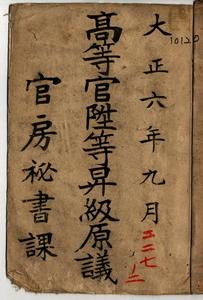 大正六年九月
高等官陞等昇級原議
官房祕書課
10120
エ二七